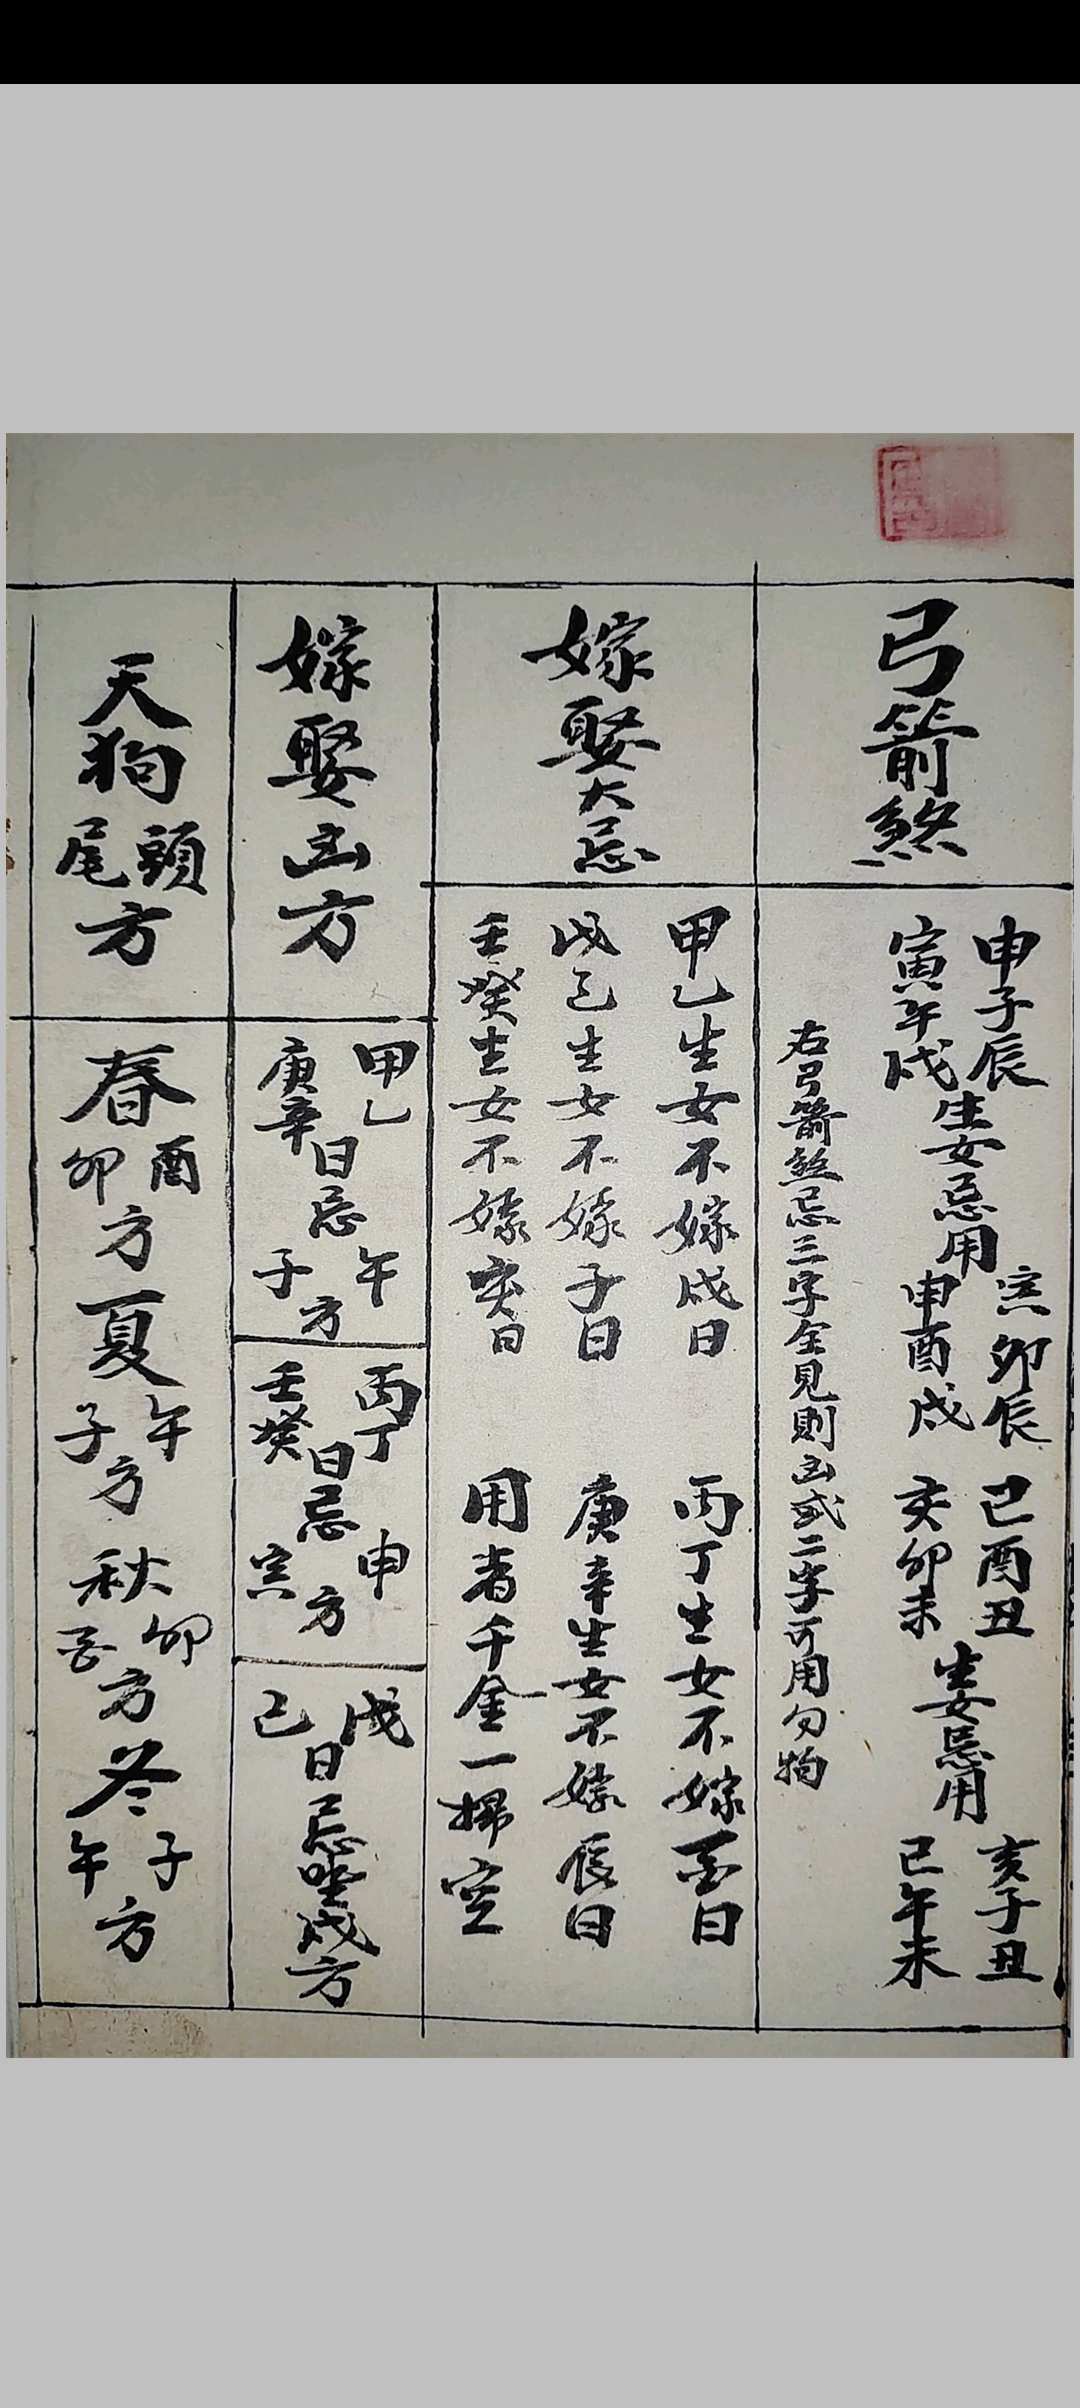 弓箭煞
申子辰
寅午戌
生女忌用
寅卯辰
申酉戌
巳酉丑
亥卯未
生女忌用
亥子丑
巳午未
右弓箭煞忌三字全見則凶或二字可用勿拘
嫁娶大忌
甲乙生女不嫁戌日
丙丁生女不嫁酉日
戊己生女不嫁子日
庚辛生女不嫁辰日
壬癸生女不嫁亥日
用者千金一掃空
嫁娶凶方
甲乙
庚辛
日忌
午
子
方
丙丁
壬癸
日忌
申
寅
方
戊
己
日忌坐戌方
天狗
頭
尾
方
春
酉
卯
方
夏
午
子
方
秋
卯
酉
方
冬
子
午
方